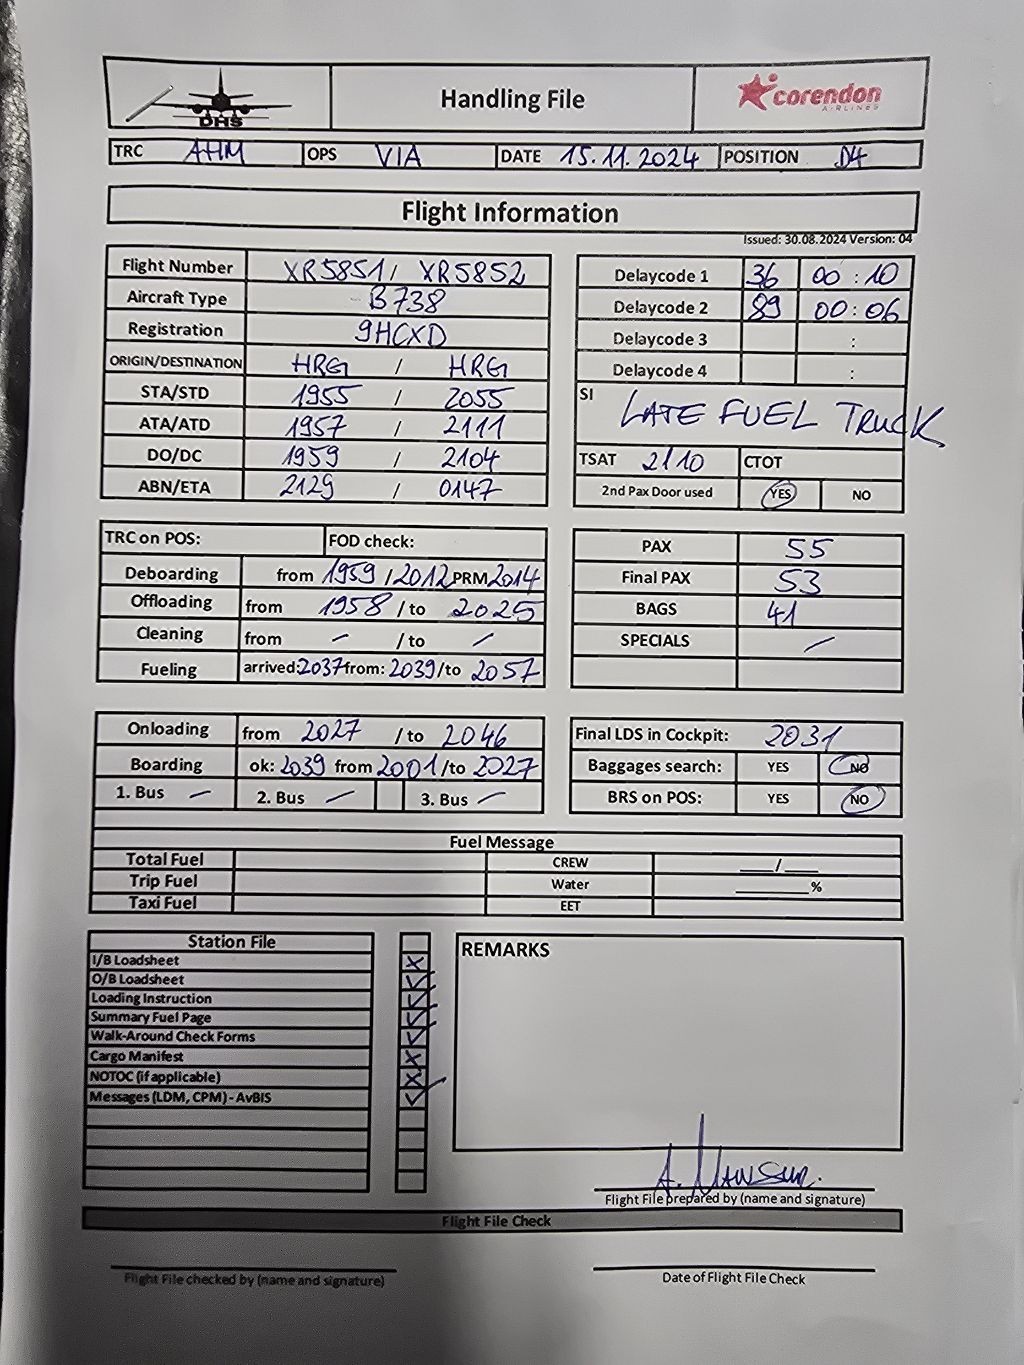 DHS Handling File corendon AIRLINES
TRC AHM OPS VIA DATE 15.11.2024 POSITION D4
Flight Information
Issued: 30.08.2024 Version: 04
Flight Number XR5851 / XR5852
Aircraft Type B738
Registration 9HCXD
ORIGIN/DESTINATION HRG / HRG
STA/STD 1955 / 2055
ATA/ATD 1957 / 2111
DO/DC 1959 / 2104
ABN/ETA 2129 / 0147
Delaycode 1 36 00:10
Delaycode 2 89 00:06
Delaycode 3 :
Delaycode 4 :
SI LATE FUEL TRUCK
TSAT 2110 CTOT
2nd Pax Door used YES NO
TRC on POS: FOD check:
Deboarding from 1959 / 2012 PRM 2014
Offloading from 1958 / to 2025
Cleaning from – / to –
Fueling arrived: 2037 from: 2039 /to 2057
PAX 55
Final PAX 53
BAGS 41
SPECIALS –
Onloading from 2027 / to 2046
Boarding ok: 2039 from 2001 /to 2027
1. Bus – 2. Bus – 3. Bus –
Final LDS in Cockpit: 2031
Baggages search: YES NO
BRS on POS: YES NO
Fuel Message
Total Fuel CREW ____/____
Trip Fuel Water ________%
Taxi Fuel EET
Station File
I/B Loadsheet X
O/B Loadsheet ✓
Loading Instruction ✓
Summary Fuel Page ✓
Walk-Around Check Forms ✓
Cargo Manifest X
NOTOC (if applicable) X
Messages (LDM, CPM) - AvBIS ✓
REMARKS
A. Mansur.
Flight File prepared by (name and signature)
Flight File Check
Flight File checked by (name and signature) Date of Flight File Check